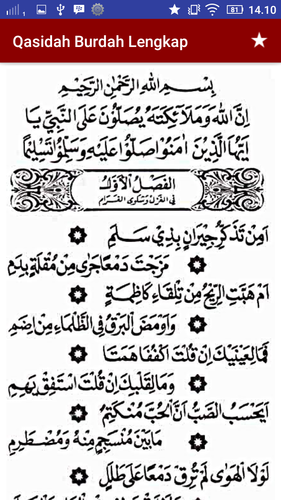 14.10
Qasidah Burdah Lengkap
بِسْمِ اللهِ الرَّحْمٰنِ الرَّحِيْمِ
اِنَّ اللهَ وَمَلَائِكَتَهُ يُصَلُّوْنَ عَلَى النَّبِيِّ يَا
اَيُّهَا الَّذِيْنَ اٰمَنُوْا صَلُّوْا عَلَيْهِ وَسَلِّمُوْا تَسْلِيْمًا
الفَصْلُ الْأَوَّلُ
فِي الْغَزَلِ وَشَكْوَى الْغَرَامِ
اَمِنْ تَذَكُّرِ جِيْرَانٍ بِذِيْ سَلَمِ
مَزَجْتَ دَمْعًا جَرٰى مِنْ مُقْلَةٍ بِدَمِ
اَمْ هَبَّتِ الرِّيْحُ مِنْ تِلْقَاءِ كَاظِمَةٍ
وَاَوْمَضَ الْبَرْقُ فِي الظَّلْمَاءِ مِنْ اِضَمِ
فَمَا لِعَيْنَيْكَ اِنْ قُلْتَ اكْفُفَا هَمَتَا
وَمَا لِقَلْبِكَ اِنْ قُلْتَ اسْتَفِقْ يَهِمِ
اَيَحْسَبُ الصَّبُّ اَنَّ الْحُبَّ مُنْكَتِمٌ
مَا بَيْنَ مُنْسَجِمٍ مِنْهُ وَمُضْطَرِمِ
لَوْلَا الْهَوٰى لَمْ تُرِقْ دَمْعًا عَلٰى طَلَلٍ